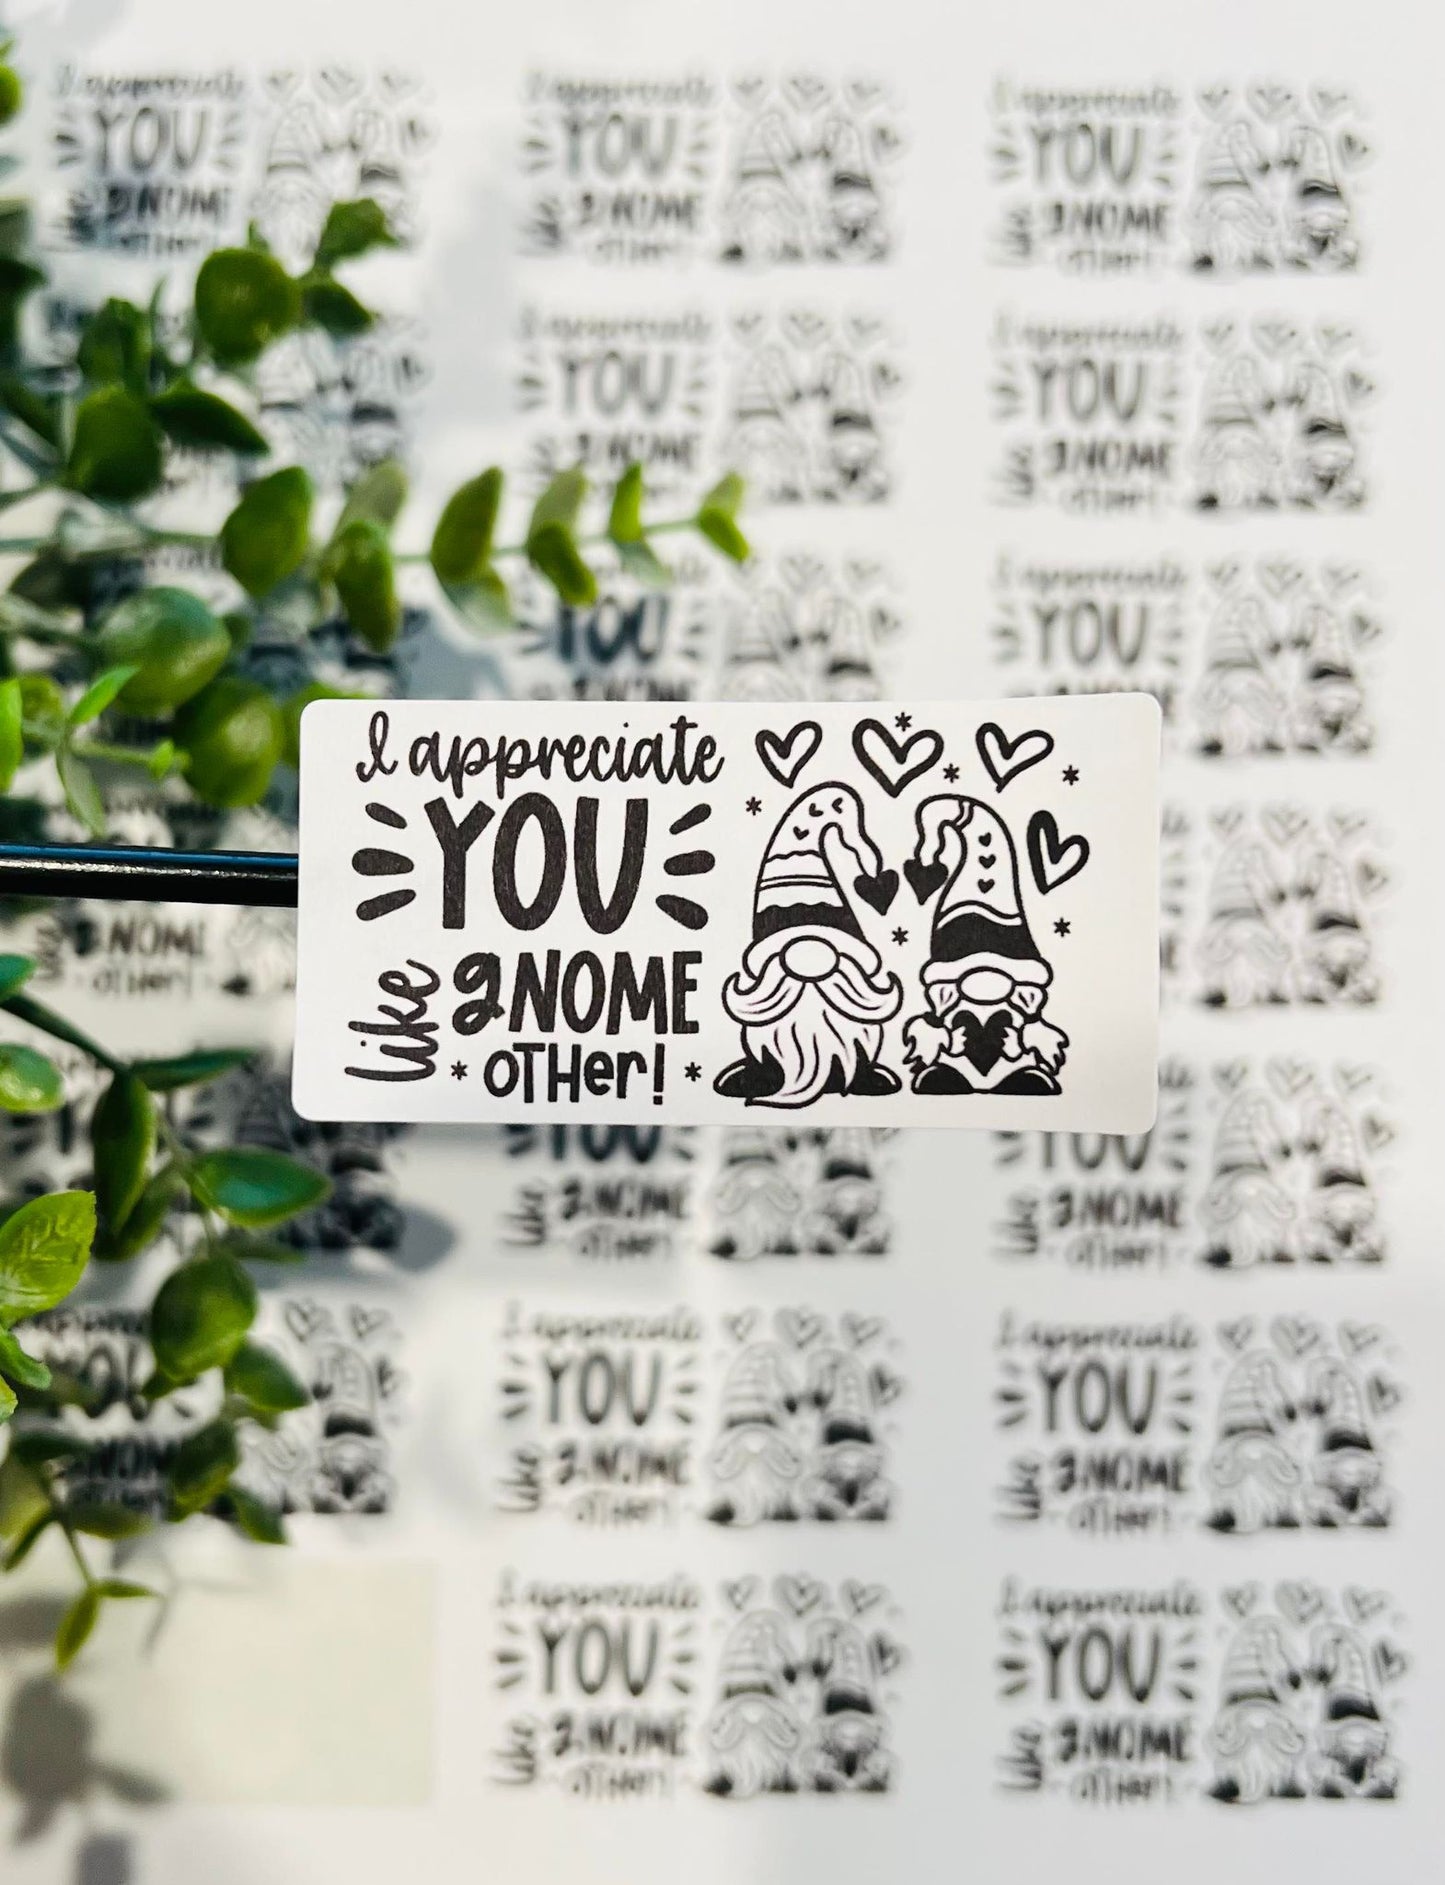 I appreciate
YOU
like gNOME
OTHer!